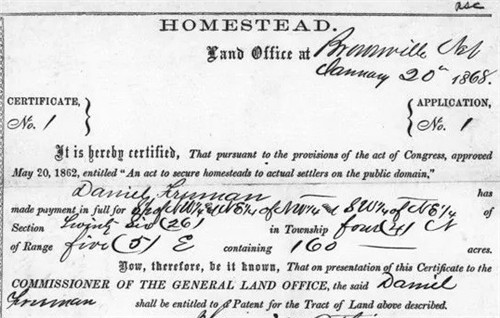 HOMESTEAD.
Land Office at Brownville Neb
January 20th 1868.
CERTIFICATE, No. 1
APPLICATION, No. 1
It is hereby certified, That pursuant to the provisions of the act of Congress, approved
May 20, 1862, entitled "An act to secure homesteads to actual settlers on the public domain,"
Daniel Freeman has
made payment in full for S½ of NW¼ & NE¼ of NW¼ & SW¼ of NE¼
Section twenty six (26) in Township four (4) N
of Range five (5) E containing 160 acres.
Now, therefore, be it known, That on presentation of this Certificate to the
COMMISSIONER OF THE GENERAL LAND OFFICE, the said Daniel
Freeman shall be entitled to a Patent for the Tract of Land above described.